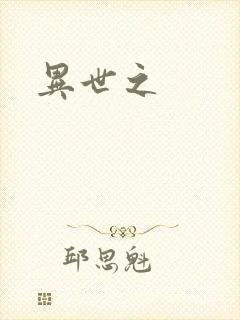 異世之
邱思魁